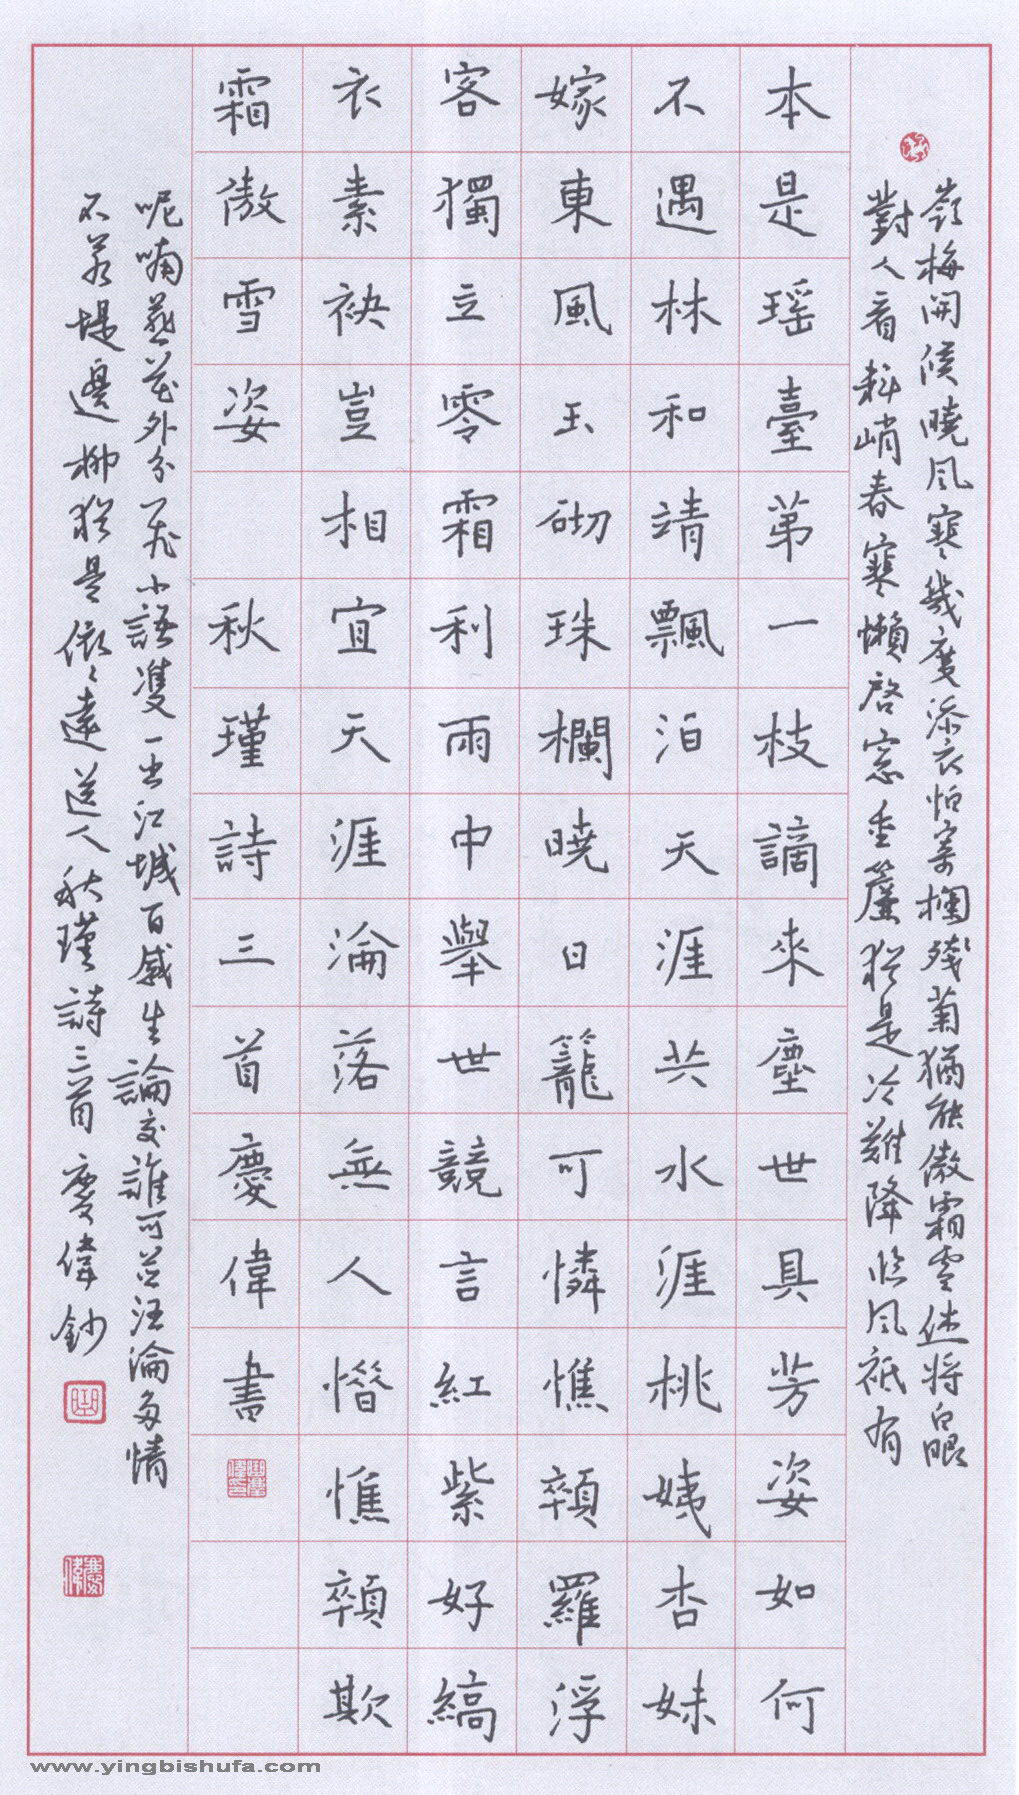 嶺梅開候曉風寒幾度添衣怕寄欄殘菊猶能傲霜雪休將白眼
對人看料峭春寒懶啓窓垂簾猶是冷難降臨風祗有
本是瑶臺第一枝謫來塵世具芳姿如何
不遇林和靖飄泊天涯共水涯桃姨杏妹
嫁東風玉砌珠欄曉日籠可憐憔顇羅浮
客獨立零霜利雨中舉世競言紅紫好縞
衣素袂豈相宜天涯淪落無人惜憔顇欺
霜傲雪姿 秋瑾詩三首慶偉書
呢喃燕花外分飛小語雙一出江城百感生論交誰可並汪淪多情
不若堤邊柳猶是依依遠送人秋瑾詩三首 慶偉鈔
www.yingbishufa.com